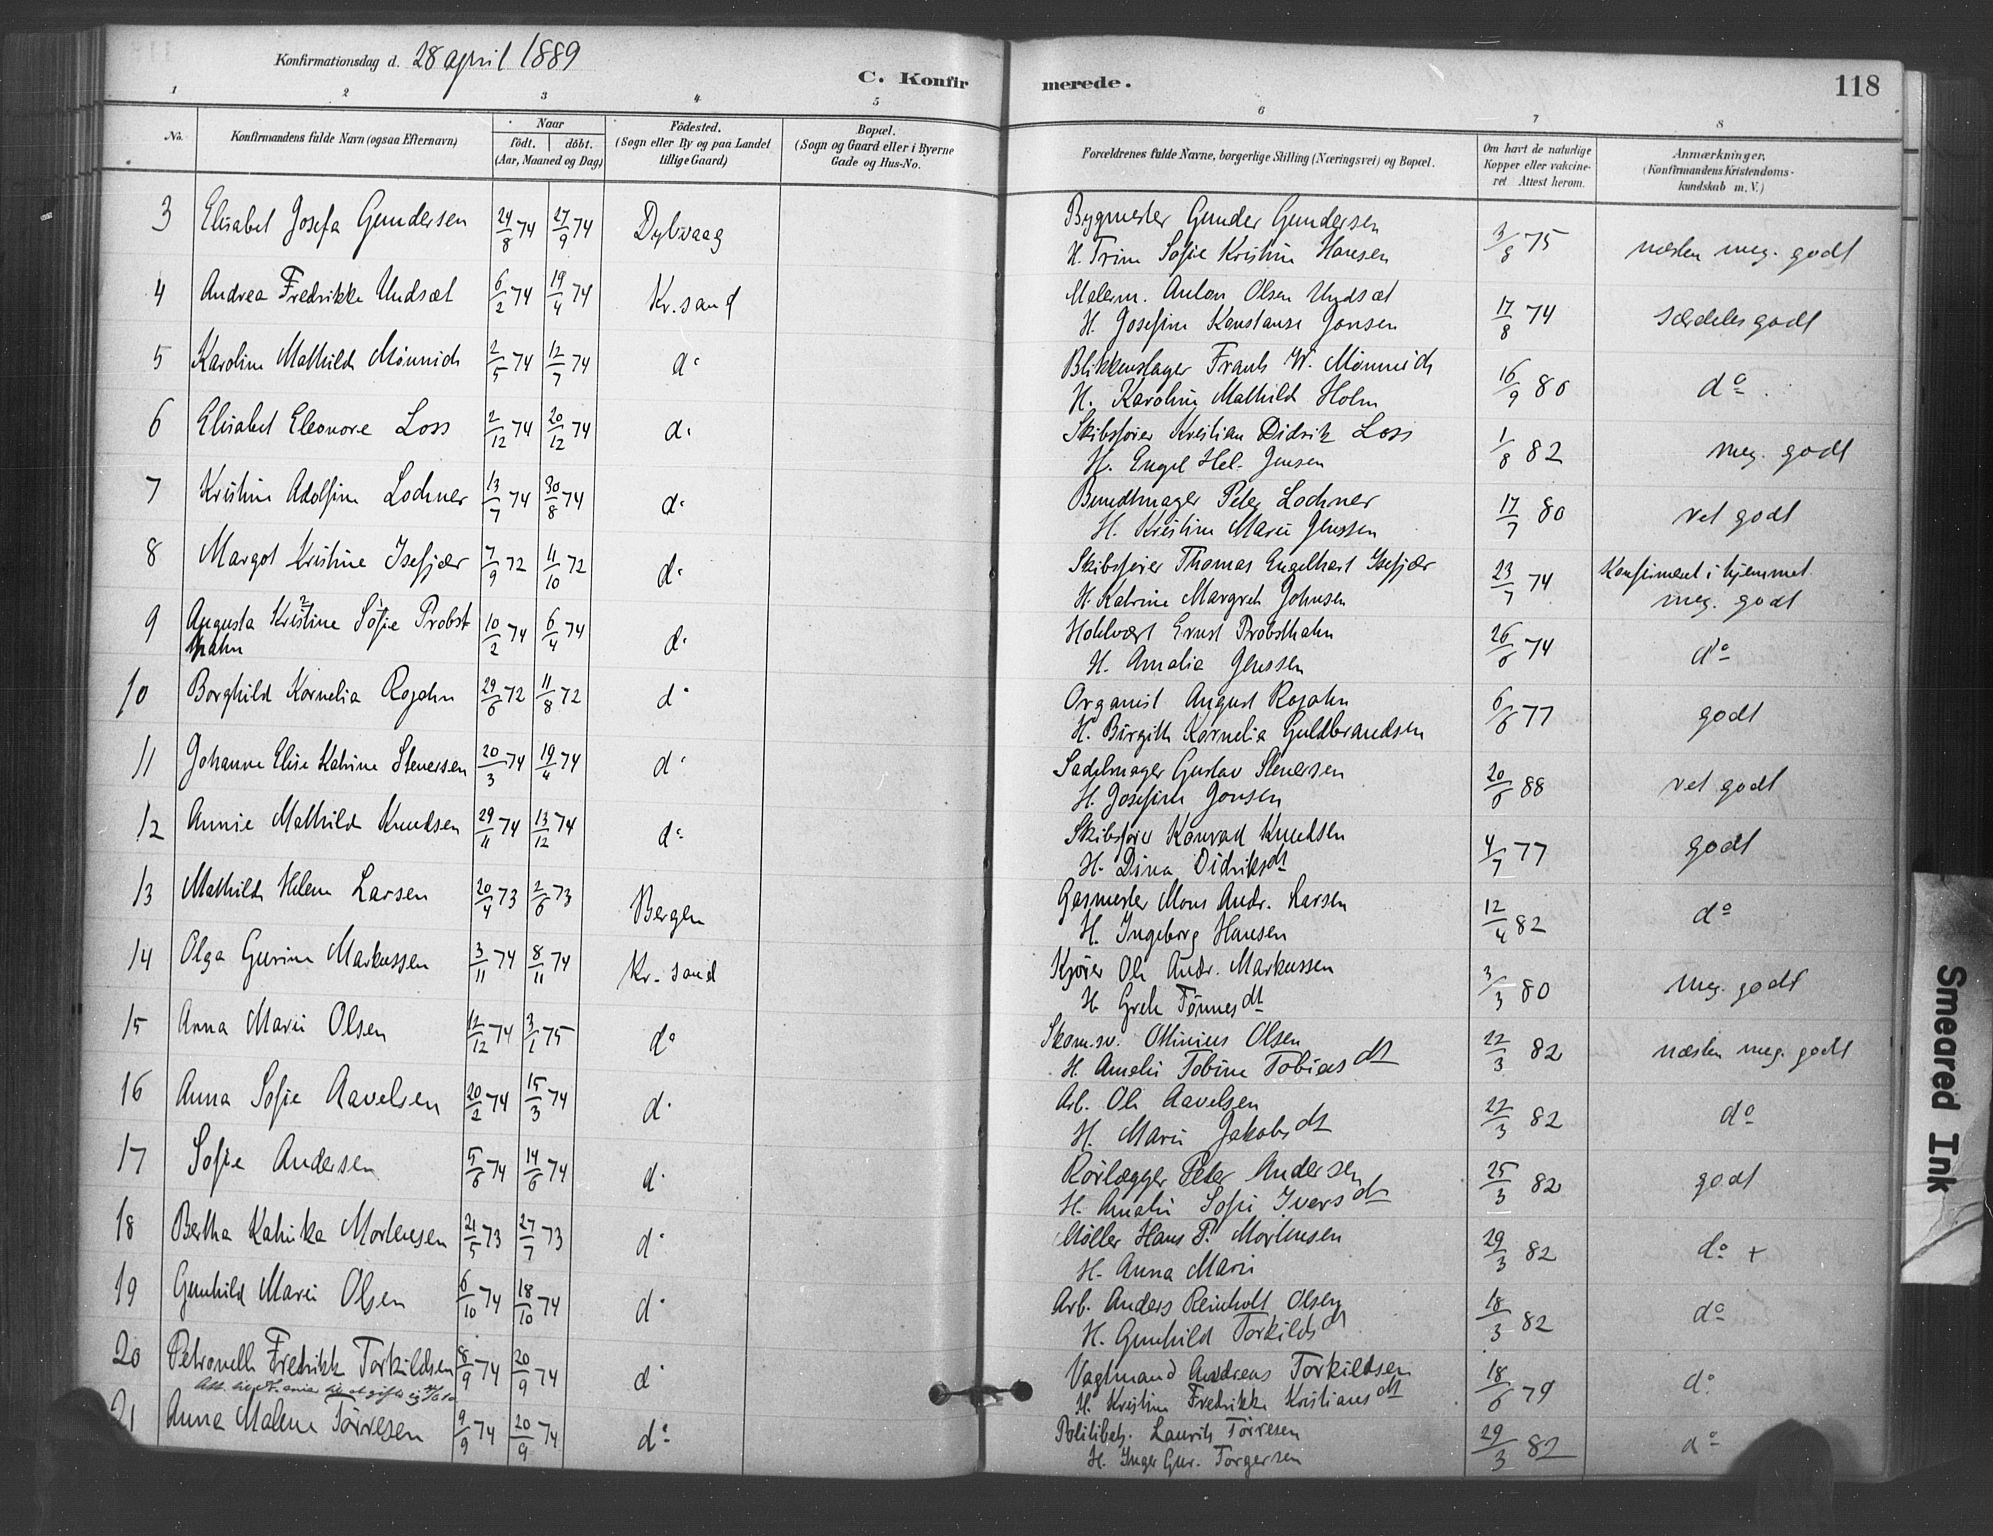 Konfirmationsdag d. 28 april 1889
C. Konfirmerede.
118
1 2 3 4 5 6 7 8
No. Konfirmandens fulde Navn (ogsaa Efternavn) Naar født. døbt. (Aar, Maaned og Dag) Födested. (Sogn eller By og paa Landet tillige Gaard) Bopæl. (Sogn og Gaard eller i Byerne Gade og Hus-No. Forældrenes fulde Navne, borgerlige Stilling (Næringsvei) og Bopæl. Om havt de naturlige Kopper eller vakcineret Attest herom. Anmærkninger. (Konfirmandens Kristendomskundskab m. V.)
3 Elisabet Josefa Gundersen 24/8 74 27/9 74 Dybvaag Bygmester Gunder Gundersen 3/8 75 næsten meg. godt
H. Trine Sofie Kristine Hansen
4 Andrea Fredrikke Undsæt 6/2 74 19/4 74 Kr.sand Malerm. Anton Olsen Undsæt 17/8 74 særdeles godt
H. Josefine Konstanse Jonsen
5 Karoline Mathilde Mönnich 2/5 74 12/7 74 do Blikkenslager Frants W. Mönnich 16/9 80 do
H. Karoline Mathilde Holm
6 Elisabet Eleonore Loss 2/12 74 20/12 74 do Skibsfører Kristian Didrik Loss 1/8 82 meg. godt
H. Engel Hel. Jensen
7 Kristine Adolfine Lochner 13/7 74 30/8 74 do Bundtmager Peter Lochner 17/7 80 vel godt
H. Kristine Marie Jenssen
8 Margot Kristine Isefjær 7/9 72 11/10 72 do Skibsfører Thomas Engelhart Isefjær 23/7 74 Konfirmeret i hjemmet.
H. Katrine Margreth Johnsen meg. godt
9 Augusta Kristine Sofie Probst 10/2 74 6/4 74 do Ernst Probsthahn 26/6 74 do
hahn H. Amalia Jenssen
10 Borghild Kornelia Rojahn 29/6 72 11/8 72 do Organist August Rojahn 6/6 77 godt
H. Birgitte Kornelia Guldbrandsen
11 Johanne Elise Katrine Stenersen 20/3 74 19/4 74 do Sadelmager Gustav Stenersen 20/6 88 vel godt
H. Josefine Jonsen
12 Annie Mathilde Knudsen 29/11 74 13/12 74 do Skibsfører Konrad Knudsen 4/7 77 godt
H. Dina Didriksdt
13 Mathilde Helene Larsen 20/4 73 2/6 73 Bergen Gasmester Mons Andr. Larsen 12/4 82 do
H. Ingeborg Hansen
14 Olga Gurine Markussen 3/11 74 8/11 74 Kr.sand Kjører Ole Andr. Markussen 3/3 80 meg. godt
H. Grete Tönnesdt
15 Anna Marie Olsen 12/12 74 3/1 75 do Skom.sv. Ottinius Olsen 22/3 82 næsten meg. godt
H. Amalie Tobine Tobiasdt
16 Anna Sofie Aavelsen 20/2 74 15/3 74 do Arb. Ole Aavelsen 22/3 82 do
H. Marie Jakobsdt
17 Sofie Andersen 5/6 74 14/6 74 do Rörlægger Peter Andersen 25/3 82 godt
H. Amalie Sofie Iversdt
18 Bertha Katinka Mortensen 21/5 73 27/7 73 do Möller Hans P. Mortensen 29/3 82 do +
H. Anna Marie
19 Gunhild Marie Olsen 6/10 74 18/10 74 do Arb. Anders Reinholt Olsen 18/3 82 do
H. Gunhild Torkildsdt
20 Petronelle Fredrikke Torkildsen 8/9 74 20/9 74 do Vagtmand Andreas Torkildsen 18/6 79 do
H. Kristine Fredrikke Kristiansdt
21 Anna Malene Törresen 9/9 74 20/9 74 do Politibetj. Laurits Törresen 29/3 82 do
H. Inger Gur. Torgersen
Smeared Ink